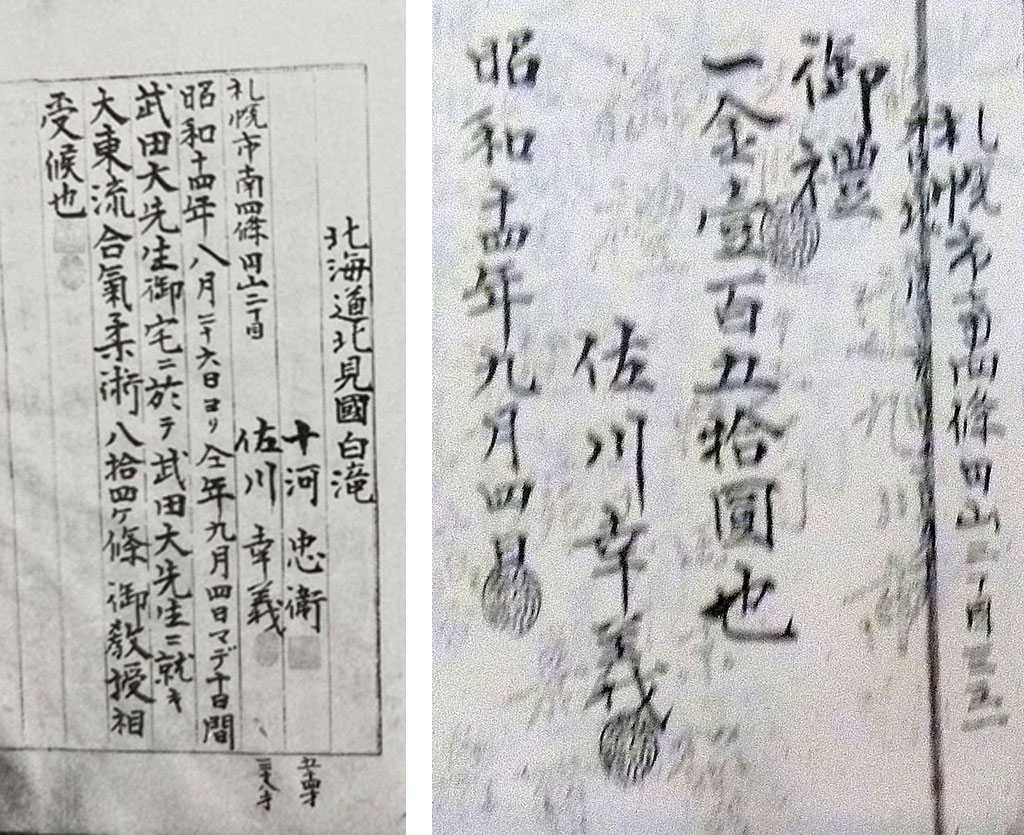 北海道北見國白滝
十河忠衛
五十四才
札幌市南四條円山二丁目
佐川幸義
三十八才
昭和十四年八月二十六日ヨリ仝年九月四日マデ十日間
武田大先生御宅ニ於テ武田大先生ニ就キ
大東流合氣柔術八拾四ケ條御教授相
受候也
札幌市南四條円山二丁目
御禮
一金壹百五拾圓也
佐川幸義
昭和十四年九月四日